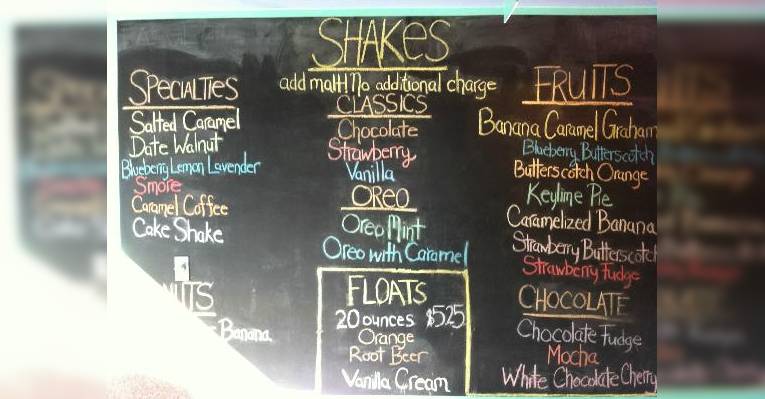 SHAKES
add malt! No additional charge
SPECIALTIES
Salted Caramel
Date Walnut
Blueberry Lemon Lavender
Smore
Caramel Coffee
Cake Shake
NUTS
Banana
CLASSICS
Chocolate
Strawberry
Vanilla
OREO
Oreo Mint
Oreo with Caramel
FLOATS
20 ounces $5.25
Orange
Root Beer
Vanilla Cream
FRUITS
Banana Caramel Graham
Blueberry Butterscotch
Butterscotch Orange
Keylime Pie
Caramelized Banana
Strawberry Butterscotch
Strawberry Fudge
CHOCOLATE
Chocolate Fudge
Mocha
White Chocolate Cherry